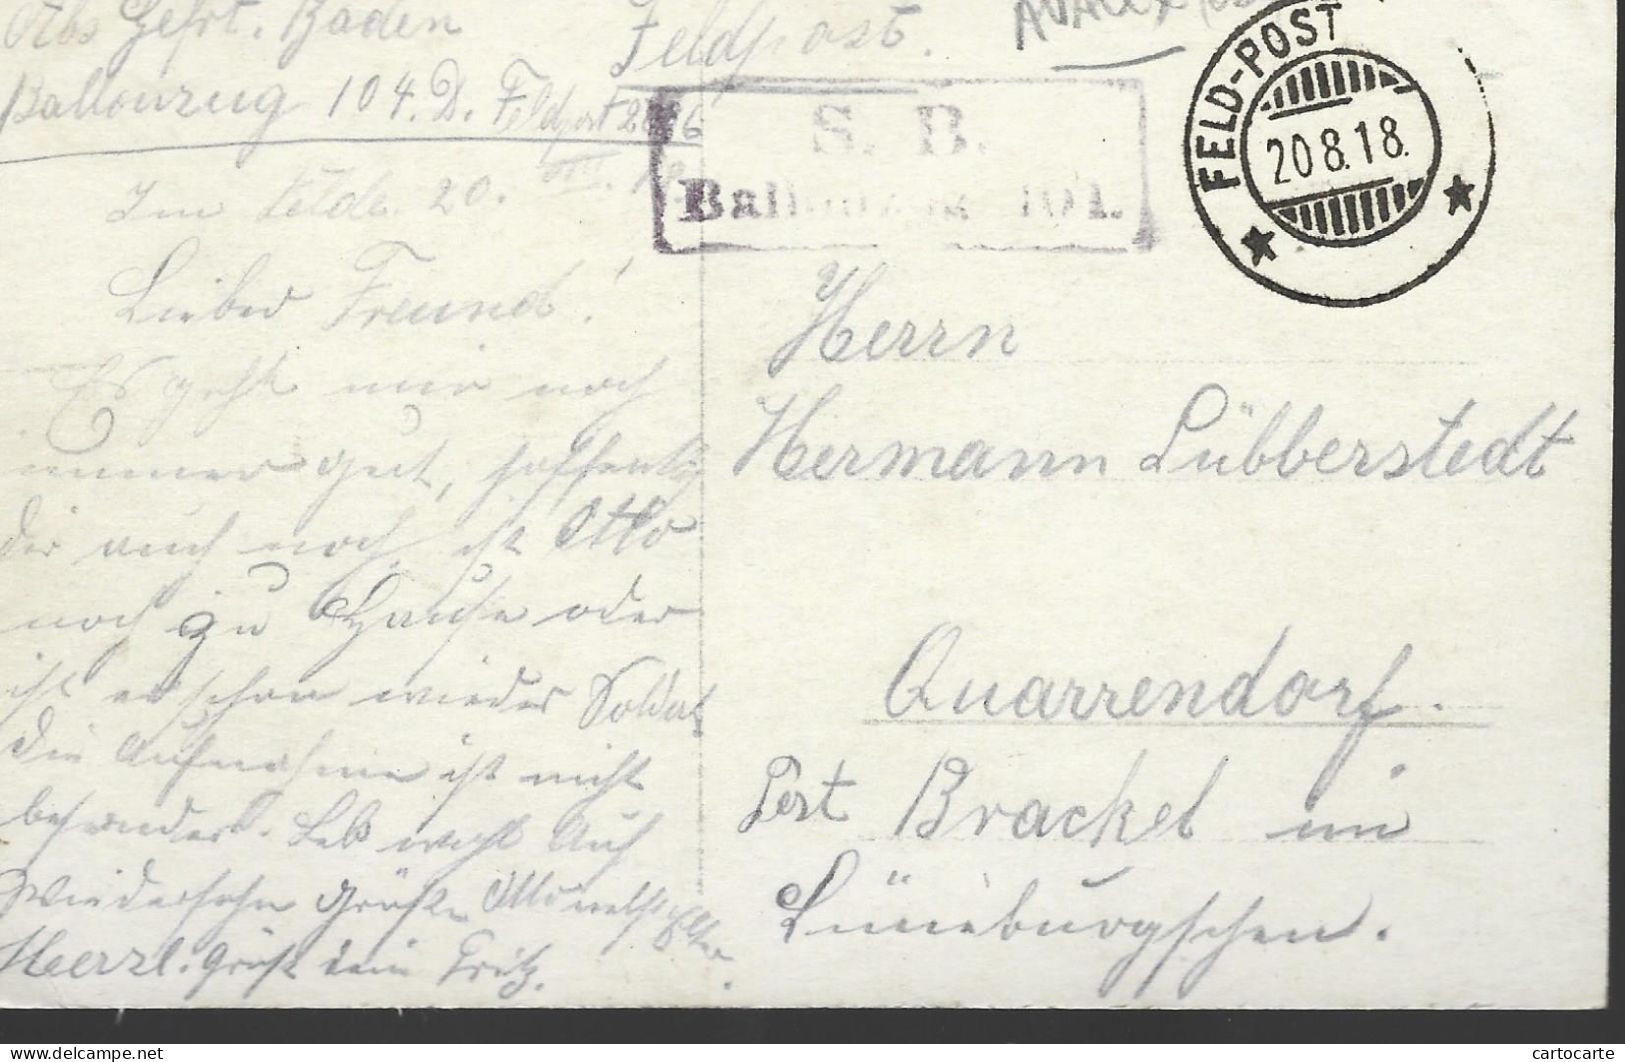 Abs Gefrt. Baden
Ballonzug 104. D. Feldpost
Feldpost.
S. B.
Ballonzug 104.
FELD-POST
20 8.18.
Im Felde. 20. VIII. 18
Lieber Freund!
Es geht mir noch
immer gut, hoffentl.
dir auch noch, ist Otto
noch zu Hause oder
ist er schon wieder Soldat
die Aufnahme ist nicht
besonders. Leb wohl Auf
Wiedersehn Grüße Otto nebst Eltern.
Herzl. Grüß dein Fritz.
Herrn
Hermann Lübberstedt
Quarrendorf.
Post Brackel im
Lüneburgschen.
cartocarte